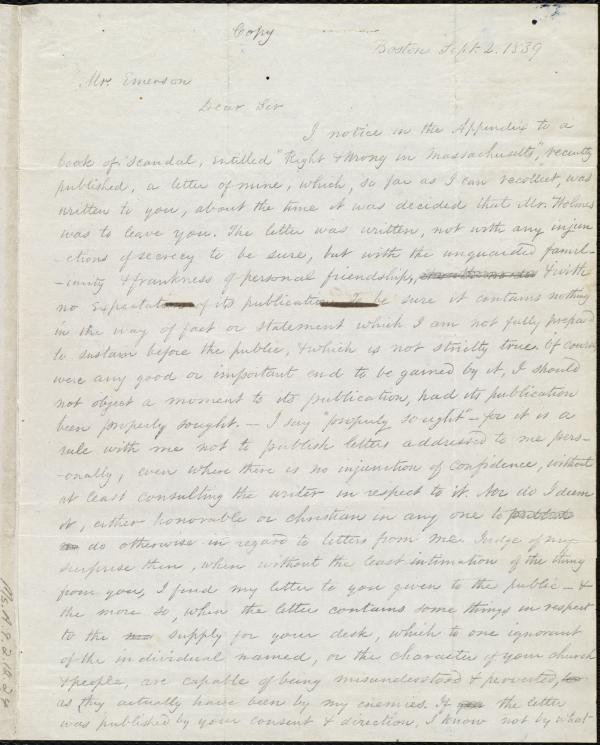 Copy
Boston Sept. 2. 1839
Mr. Emerson
Dear Sir
I notice in the Appendix to a
book of scandal, entitled "Right & Wrong in Massachusetts", recently
published, a letter of mine, which, so far as I can recollect, was
written to you, about the time it was decided that Mr. Holmes
was to leave you. The letter was written, not with any injun
-ctions of secrecy to be sure, but with the unguarded famil-
-iarity & frankness of personal friendship, & with
no expectation of its publication. To be sure it contains nothing
in the way of fact or statement which I am not fully prepared
to sustain before the public, & which is not strictly true. Of course
were any good or important end to be gained by it, I should
not object a moment to its publication, had its publication
been properly sought. — I say "properly sought" — for it is a
rule with me not to publish letters addressed to me pers-
-onally, even where there is no injunction of confidence, without
at least consulting the writer in respect to it. Nor do I deem
it, either honorable or christian in any one to
do otherwise in regard to letters from me. Judge of my
surprise then, when without the least intimation of the thing
from you, I find my letter to you given to the public — &
the more so, when the letter contains some things in respect
to the supply for your desk, which to one ignorant
of the individual named, or the character of your church
& people, are capable of being misunderstood & perverted,
as they actually have been by my enemies. If the letter
was published by your consent & direction, I know not by what
Ms. A. 9. 2. 12. 24